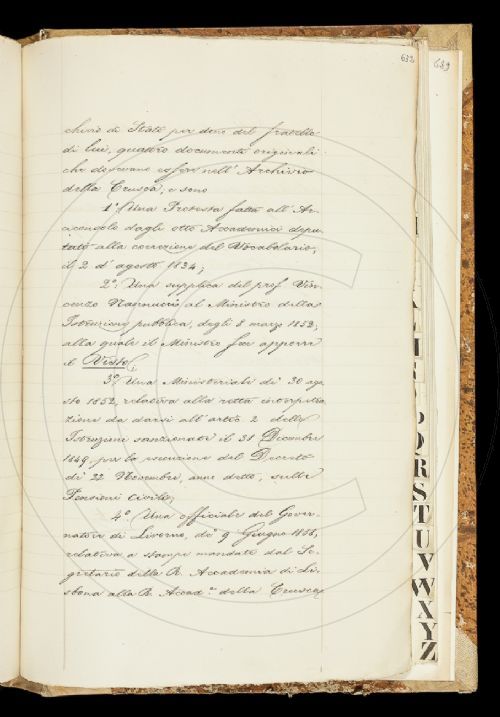 632
639
chivio di Stato per dono del fratello
di lui, quattro documenti originali
che dovevano essere nell'Archivio
della Crusca, e sono
1.° Una Protesta fatta all'Ar-
ciconsolo dagli otto Accademici depu-
tati alla correzione del Vocabolario,
il 2 d'agosto 1834;
2.° Una supplica del prof. Vin-
cenzo Nannucci al Ministro della
Istruzione pubblica, degli 8 marzo 1852,
alla quale il Ministro fece apporre
il Visto;
3.° Una Ministeriale di 30 ago-
sto 1852, relativa alla retta interpetra-
zione da darsi all'artic. 2 delle
Istruzioni sanzionate il 31 Dicembre
1849, per la esecuzione del Decreto
di 22 Novembre, anno detto, sulle
Pensioni Civili;
4.° Una officiale del Gover-
natore di Livorno, de' 9 Giugno 1856,
relativa a stampe mandate dal Se-
gretario della R. Accademia di Lis-
bona alla R. Accad.ª della Crusca
P
Q
R
S
T
U
V
W
X
Y
Z